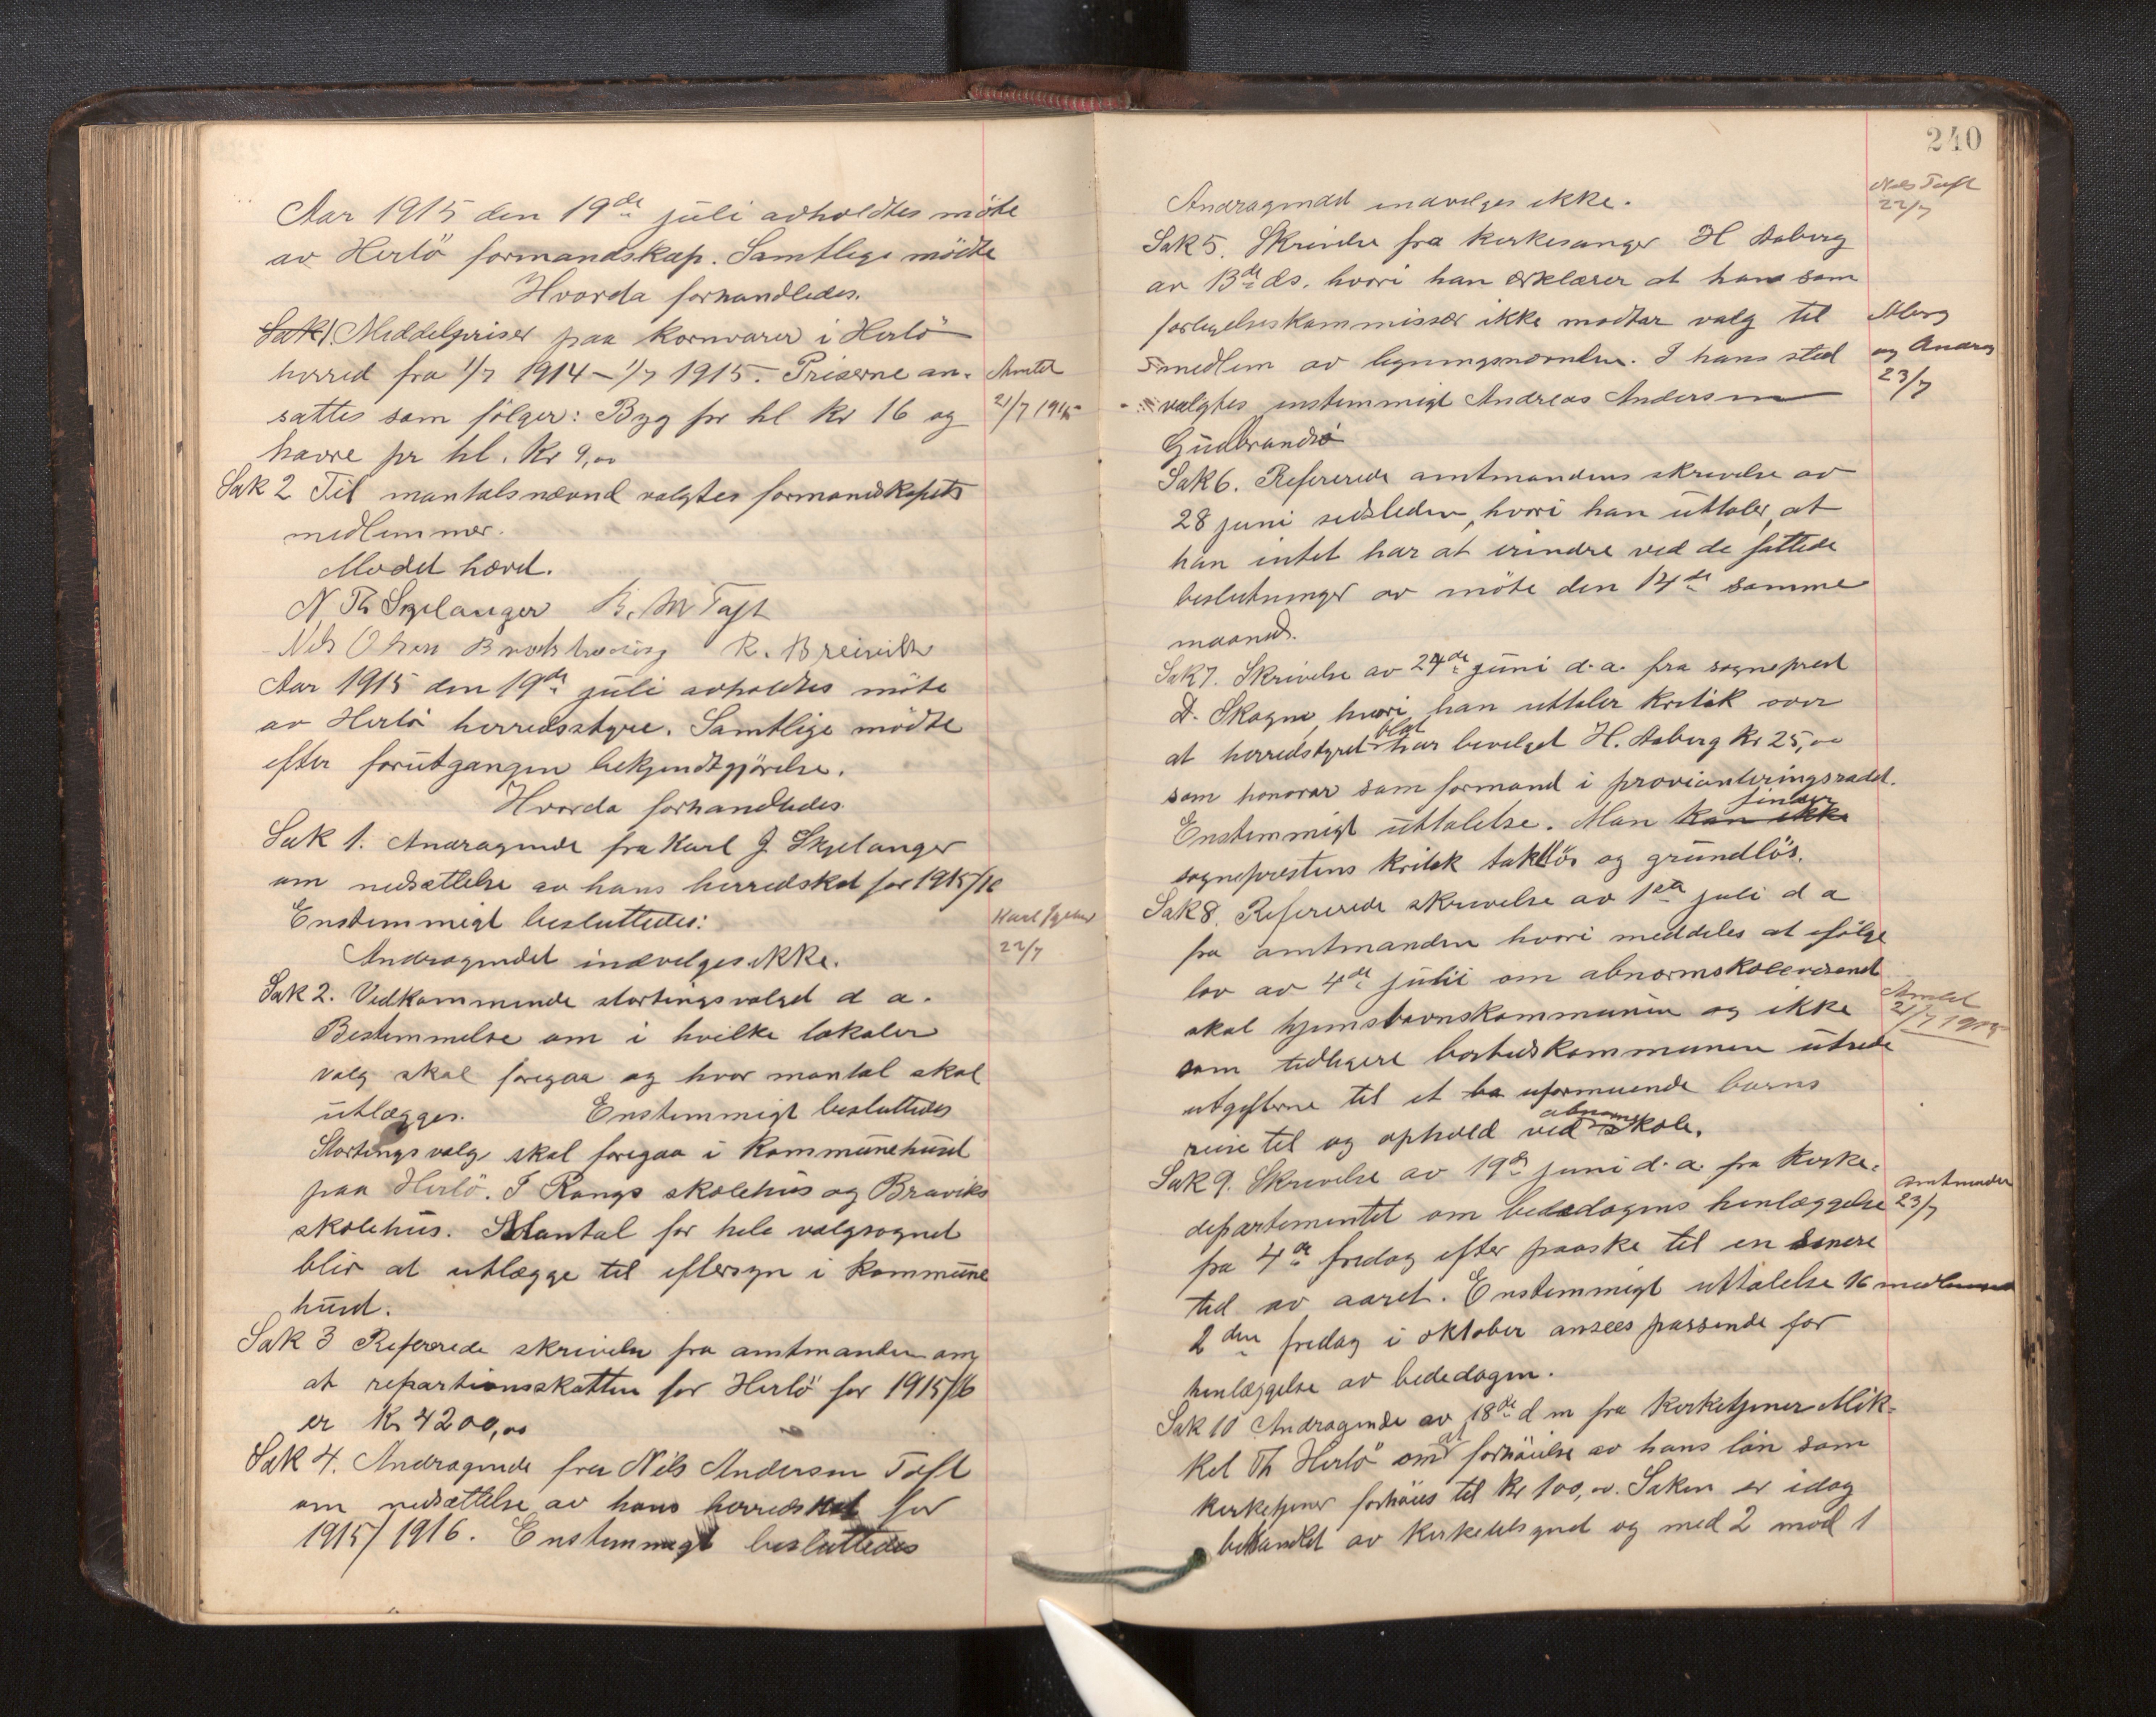 Aar 1915 den 19de juli avholdtes möte
av Herlö formandskap. Samtlige mödte
Hvorda forhandledes.
Sak 1. Middelpriser paa kornvarer i Herlö
herred fra 1/7 1914 – 1/7 1915. Priserne an-
sattes som fölger: Byg pr hl kr 16 og
havre pr hl. kr 9,00
Amtet
21/7 1915
Sak 2 Til mantalsnævnd valgtes formandskapets
medlemmer.
Mödet hævet.
N. Th Skjelanger B. M Toft
Nils Olsen R. Breivik
Aar 1915 den 19de juli avholdtes möte
av Herlö herredsstyre. Samtlige mödte
efter forutgangen bekjendtgjörelse.
Hvorda forhandledes.
Sak 1. Andragende fra Karl J Skjelanger
om nedsættelse av hans herredskat for 1915/16
Enstemmigt besluttedes:
Andragendet indvelges ikke.
Karl Skjelanger
22/7
Sak 2. Vedkommende stortingsvalget d a.
Bestemmelse om i hvilke lokaler
valg skal foregaa og hvor mantal skal
utlægges. Enstemmigt besluttedes
Stortingsvalg skal foregaa i kommunehuset
paa Herlö. I Rongs skolehus og Braviks
skolehus. Mantal for hele valgsognet
blir at utlægge til eftersyn i kommune
huset.
Sak 3 Refererede skrivelse fra amtmanden om
at repartionsskatten for Herlö for 1915/16
er kr 4200,00
Sak 4. Andragende fra Nils Andersen Toft
om nedsættelse av hans herredskat for
1915/1916. Enstemmigt besluttedes
240
Andragendet indvelges ikke.
Nils Toft
22/7
Sak 5. Skrivelse fra kirkesanger H Aaberg
av 13de ds. hvori han erklærer at han som
forligelseskommissær ikke modtar valg til
medlem av ligningsnævnden. I hans sted
valgtes enstemmigt Andreas Andersen
Gudbrandsö
Aberg
og Andreas
23/7
Sak 6. Refererede amtmandens skrivelse av
28 juni sidstleden, hvori han uttaler, at
han intet har at erindre ved de fattede
beslutninger av möte den 14de samme
maaned.
Sak 7. Skrivelse av 24de juni d.a. fra sogneprest
D. Skogne, hvori han uttaler kritik over
at herredstyret blot har bevelget H. Aaberg kr 25,00
som honorar som formand i provianteringsraadet.
Enstemmigt uttalelse. Man kan ikke finder
sogneprestens kritik taktlös og grundlös.
Sak 8. Refererede skrivelse av 1ste juli d a
fra amtmanden hvori meddeles at ifölge
lov av 4de juni om abnormskolevesenet
skal hjemstavnskommunen og ikke
som tidligere bostedskommunen utrede
utgifterne til et ba uformuende barns
reise til og ophold ved abnormskole.
Amtet
21/7 1915
Sak 9. Skrivelse av 19de juni d.a. fra kirke-
departementet om bededagens henlæggelse
fra 4de fredag efter paaske til en senere
tid av aaret. Enstemmigt uttalelse 16 medlemmer
2den fredag i oktober ansees passende for
henlæggelse av bededagen.
Amtmanden
23/7
Sak 10 Andragende av 18de d m fra kirketjener Mik-
kel Th Herlö om at forhöielse av hans lön som
kirketjener forhöies til kr 100,00. Saken er idag
behandlet av kirketilsynet og med 2 mod 1